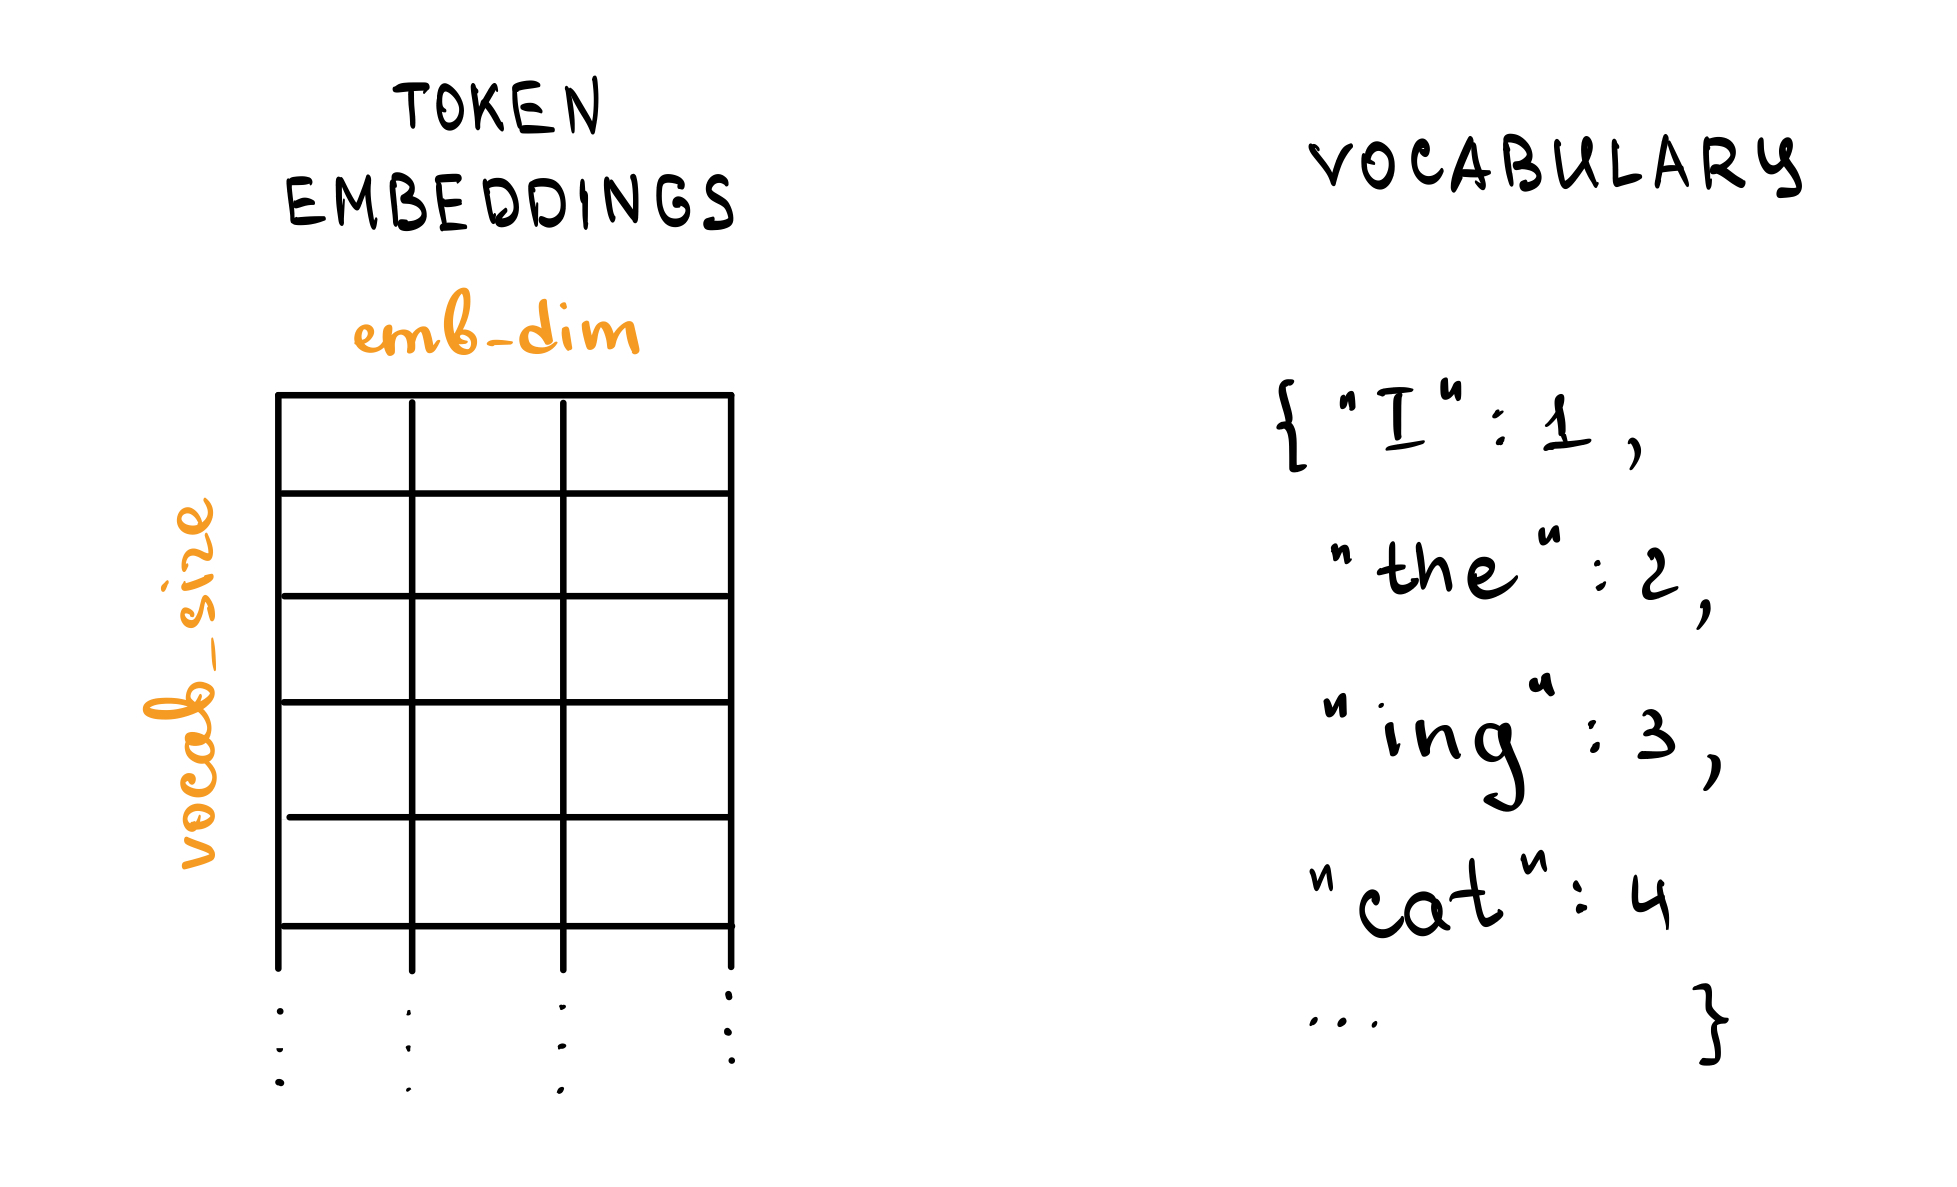 TOKEN
EMBEDDINGS
emb_dim
vocab_size
VOCABULARY
{"I": 1,
"the": 2,
"ing": 3,
"cat": 4
... }